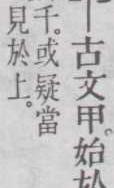 古文甲。始於
千。或疑當
見於上。